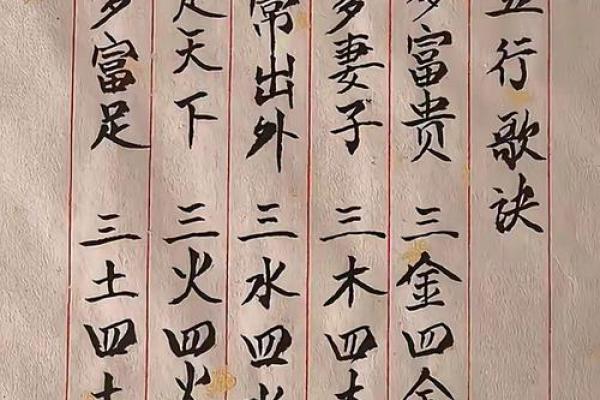 五行歌诀
多富贵 三金四金
多妻子 三木四木
常出外 三水四水
走天下 三火四火
多富足 三土四土